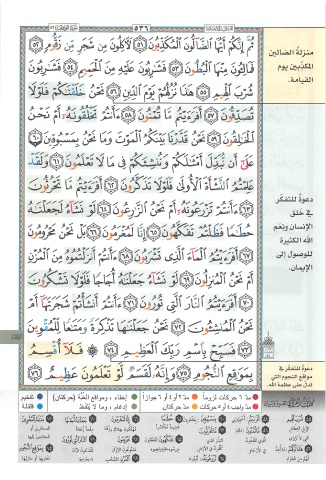 ٥٣٦
ثُمَّ إِنَّكُمْ أَيُّهَا الضَّالُّونَ الْمُكَذِّبُونَ ٥١ لَآكِلُونَ مِن شَجَرٍ مِّن زَقُّومٍ ٥٢
فَمَالِئُونَ مِنْهَا الْبُطُونَ ٥٣ فَشَارِبُونَ عَلَيْهِ مِنَ الْحَمِيمِ ٥٤ فَشَارِبُونَ
شُرْبَ الْهِيمِ ٥٥ هَٰذَا نُزُلُهُمْ يَوْمَ الدِّينِ ٥٦ نَحْنُ خَلَقْنَاكُمْ فَلَوْلَا
تُصَدِّقُونَ ٥٧ أَفَرَأَيْتُم مَّا تُمْنُونَ ٥٨ ءَأَنتُمْ تَخْلُقُونَهُ أَمْ نَحْنُ
الْخَالِقُونَ ٥٩ نَحْنُ قَدَّرْنَا بَيْنَكُمُ الْمَوْتَ وَمَا نَحْنُ بِمَسْبُوقِينَ ٦٠
عَلَىٰ أَن نُّبَدِّلَ أَمْثَالَكُمْ وَنُنشِئَكُمْ فِي مَا لَا تَعْلَمُونَ ٦١ وَلَقَدْ
عَلِمْتُمُ النَّشْأَةَ الْأُولَىٰ فَلَوْلَا تَذَكَّرُونَ ٦٢ أَفَرَأَيْتُم مَّا تَحْرُثُونَ
٦٣ ءَأَنتُمْ تَزْرَعُونَهُ أَمْ نَحْنُ الزَّارِعُونَ ٦٤ لَوْ نَشَاءُ لَجَعَلْنَاهُ
حُطَامًا فَظَلْتُمْ تَفَكَّهُونَ ٦٥ إِنَّا لَمُغْرَمُونَ ٦٦ بَلْ نَحْنُ مَحْرُومُونَ
٦٧ أَفَرَأَيْتُمُ الْمَاءَ الَّذِي تَشْرَبُونَ ٦٨ ءَأَنتُمْ أَنزَلْتُمُوهُ مِنَ الْمُزْنِ
أَمْ نَحْنُ الْمُنزِلُونَ ٦٩ لَوْ نَشَاءُ جَعَلْنَاهُ أُجَاجًا فَلَوْلَا تَشْكُرُونَ
٧٠ أَفَرَأَيْتُمُ النَّارَ الَّتِي تُورُونَ ٧١ ءَأَنتُمْ أَنشَأْتُمْ شَجَرَتَهَا أَمْ
نَحْنُ الْمُنشِئُونَ ٧٢ نَحْنُ جَعَلْنَاهَا تَذْكِرَةً وَمَتَاعًا لِّلْمُقْوِينَ
٧٣ فَسَبِّحْ بِاسْمِ رَبِّكَ الْعَظِيمِ ٧٤ فَلَا أُقْسِمُ
بِمَوَاقِعِ النُّجُومِ ٧٥ وَإِنَّهُ لَقَسَمٌ لَّوْ تَعْلَمُونَ عَظِيمٌ ٧٦
منزلة الضالين
المكذبين يوم
القيامة.
دعوة للتفكر
في خلق
الإنسان ونعم
الله الكثيرة
للوصول إلى
الإيمان.
دعوة للتفكر في
مواقع النجوم التي
تدل على عظمة الله.
مد ٦ حركات لزوماً
مد ٢ أو ٤ أو ٦ جوازاً
إخفاء، ومواقع الغنة (حركتان)
تفخيم
مد واجب ٤ أو ٥ حركات
مد حركتان
إدغام، وما لا يلفظ
قلقلة